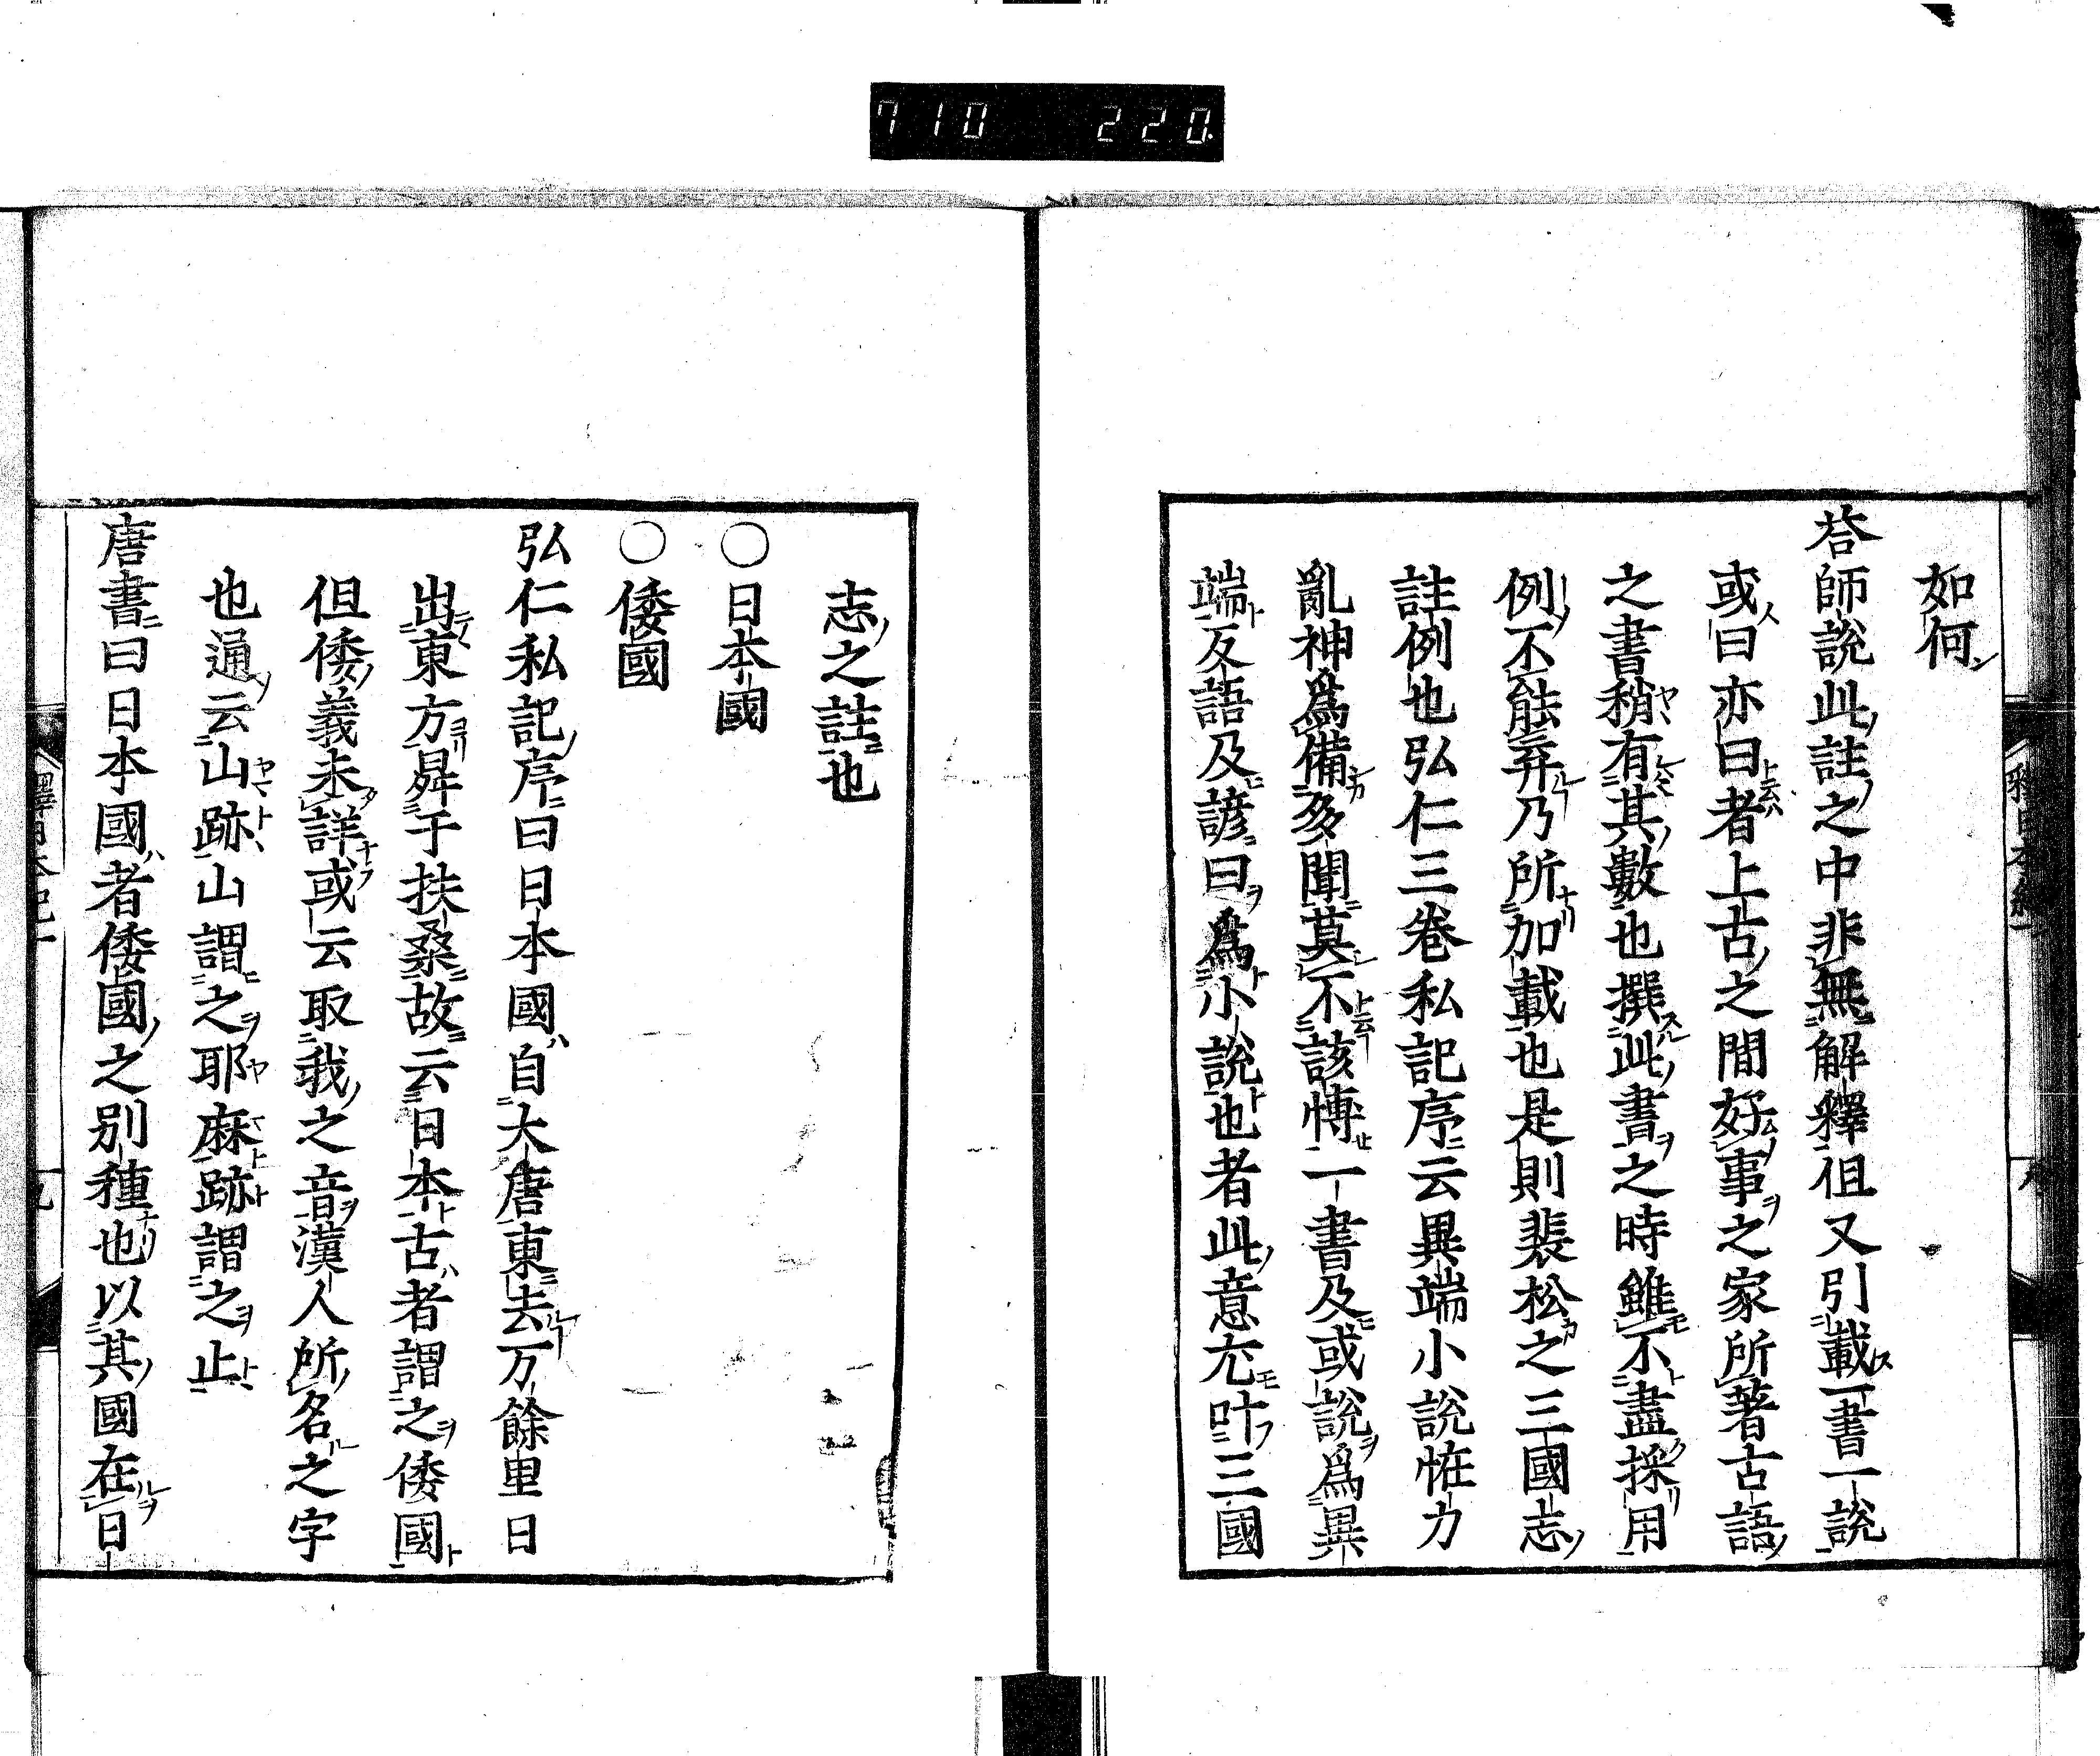 710 220
如何
荅師說此註之中非無解釋但又引載一書一說
或曰亦曰者上古之間好事之家所著古語
之書稍有其數也撰此書之時雖不盡採用
例不能弃乃所加載也是則裴松之三國志
註例也弘仁三卷私記序云異端小說恠力
亂神爲備多聞莫不該愽一書及或說爲異
端反語及諺曰爲小說也者此意尤叶三國
志之註也
○日本國
○倭國
弘仁私記序曰日本國自大唐東去万餘里日
出東方昇于扶桑故云日本古者謂之倭國
但倭義未詳或云取我之音漢人所名之字
也通云山跡山謂之耶麻跡謂之止
唐書曰日本國者倭國之別種也以其國在日